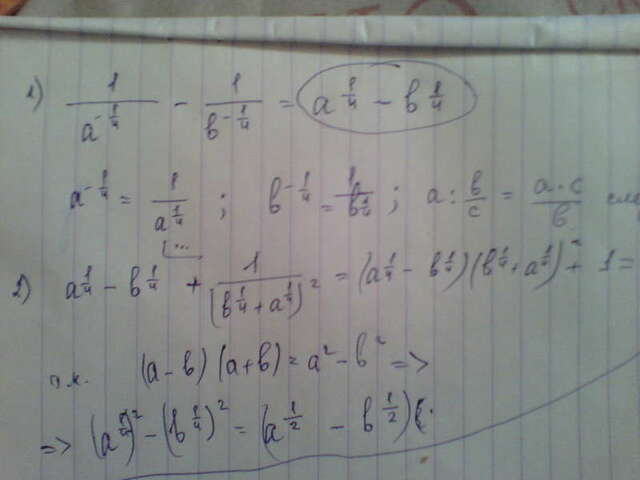 1) 1/a^(-1/4) - 1/b^(-1/4) = a^(1/4) - b^(1/4)
a^(-1/4) = 1/a^(1/4) ; b^(-1/4) = 1/b^(1/4) ; a : b/c = a·c/b
2) a^(1/4) - b^(1/4) + 1/(b^(1/4) + a^(1/4))^2 = (a^(1/4) - b^(1/4))(b^(1/4) + a^(1/4))^2 + 1 =
т.к. (a - b)(a + b) = a^2 - b^2 =>
=> (a^(1/4))^2 - (b^(1/4))^2 = (a^(1/2) - b^(1/2))